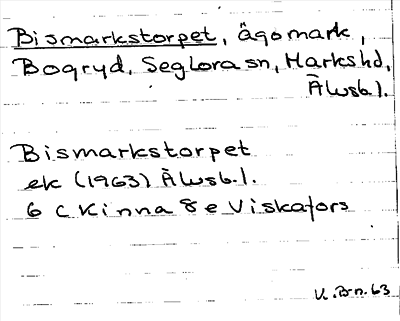 Bismarkstorpet, ägomark,
Bogryd, Seglora sn, Marks hd,
Älvsb.l.
Bismarkstorpet
ek (1963) Älvsb.l.
6 c Kinna 8 e Viskafors
63